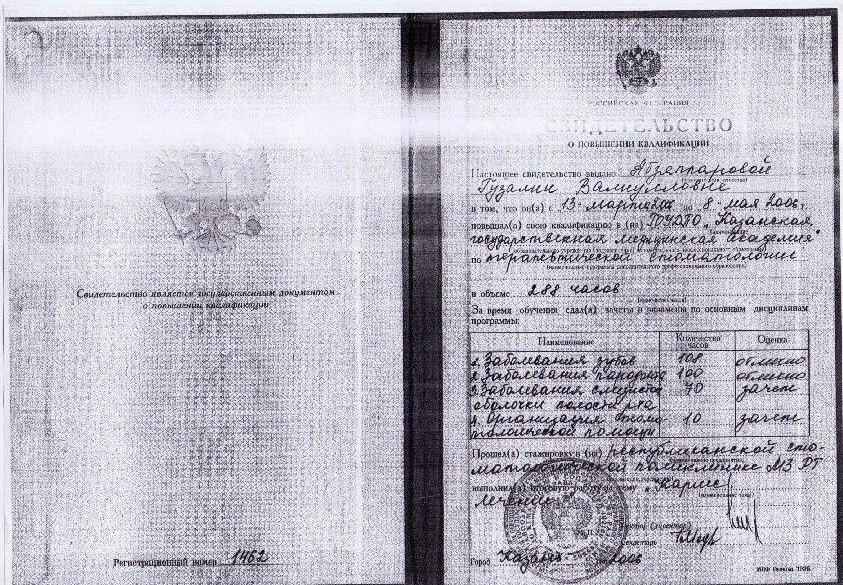 Свидетельство является государственным документом
о повышении квалификации
Регистрационный номер 1462
РОССИЙСКАЯ ФЕДЕРАЦИЯ
СВИДЕТЕЛЬСТВО
О ПОВЫШЕНИИ КВАЛИФИКАЦИИ
Настоящее свидетельство выдано
Гузалии
в том, что он(а) с 13 марта 2006 по 8 мая 2006 г.
повышал(а) свою квалификацию в (на) Казанская
государственная медицинская академия"
по терапевтической стоматологии
в объеме 288 часов
За время обучения сдал(а) зачеты и экзамены по основным дисциплинам
программы:
Наименование Количество часов Оценка
1. Заболевания зубов 108 отлично
2. Заболевания пародонта 100 отлично
3. Заболевания слизистой 70 зачет
оболочки полости рта
4. Организация стома 10 зачет
тологической помощи
Прошел(а) стажировку в (на) республиканской сто
матологической поликлинике МЗ РТ
выполнил(а) итоговую работу на тему "Кариес
лечение
секретарь
Город Казань 2006